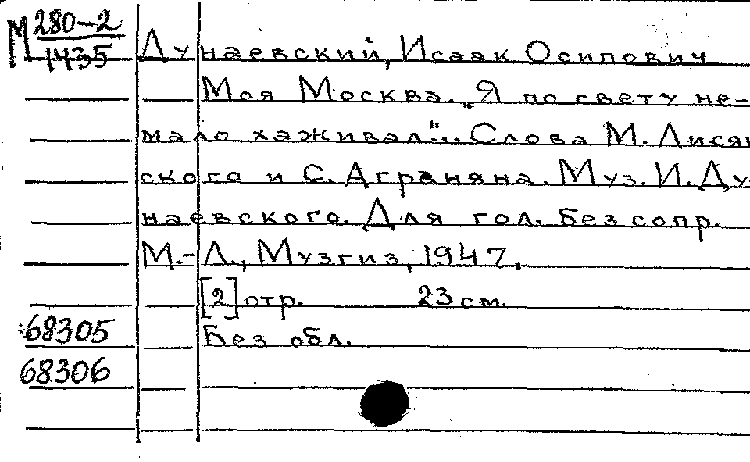 М 280-2
1435
Дунаевский, Исаак Осипович
Моя Москва. „Я по свету не-
мало хаживал"... Слова М. Лисян
ского и С. Аграняна. Муз. И. Ду
наевского. Для гол. без сопр.
М.-Л., Музгиз, 1947.
[2] стр. 23 см.
68305 Без обл.
68306